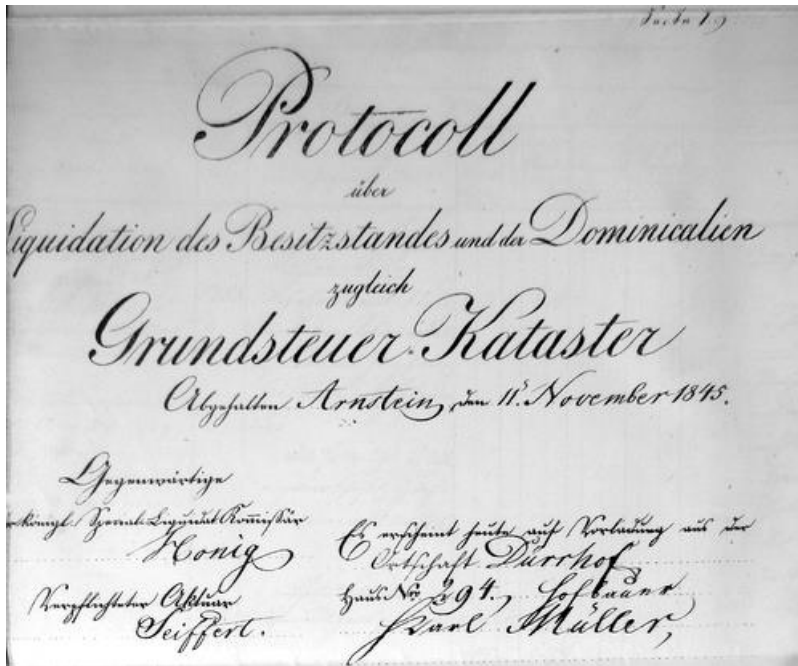 Protocoll
über
Liquidation des Besitzstandes und der Dominicalien
zugleich
Grundsteuer-Kataster
Abgehalten Arnstein, den 11. November 1845.
Gegenwärtige
königl. Spezial-Liquidat. Kommissär
Honig
Verpflichteter Aktuar
Seiffert.
Es erscheint heute auf Vorladung aus der
Ortschaft Dürrhof,
Haus No 294. Hofbauer
Karl Müller,